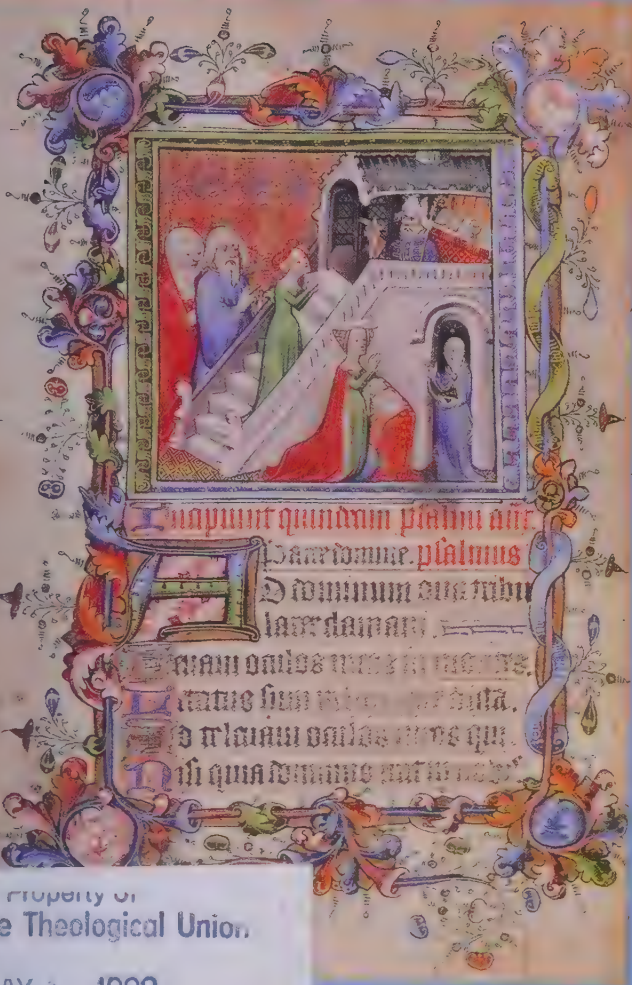 Incipiunt quindecim psalmi ant.
Parce domine. psalmus
AD dominum cum tribu
larer clamaui.
Leuaui oculos meos in montes.
Letatus sum in
Ad te leuaui oculos meos qui.
Nisi quia dominus erat in
Property of
e Theological Union